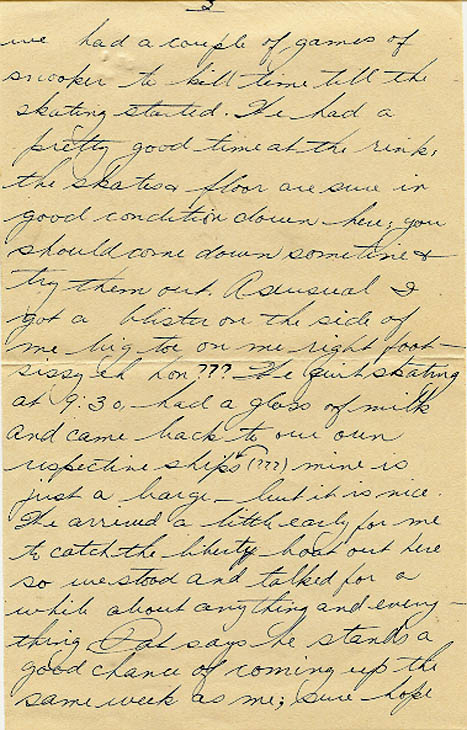 3
we had a couple of games of
snooker to kill time till the
skating started. We had a
pretty good time at the rink,
the skates & floor are sure in
good condition down here; you
should come down sometime &
try them out. As usual I
got a blister on the side of
me big toe on me right foot —
sissy eh hon??? We quit skating
at 9:30, had a glass of milk
and came back to our own
respective ships (???) mine is
just a barge — but it is nice.
We arrived a little early for me
to catch the liberty boat out here
so we stood and talked for a
while about anything and every-
thing. Pat says he stands a
good chance of coming up the
same week as me; sure hope